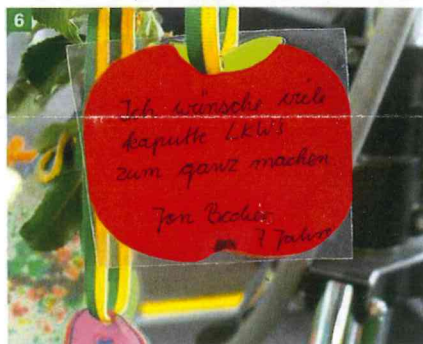 6
Ich wünsche viele
kaputte LKWs
zum ganz machen
Jon Becher
7 Jahre